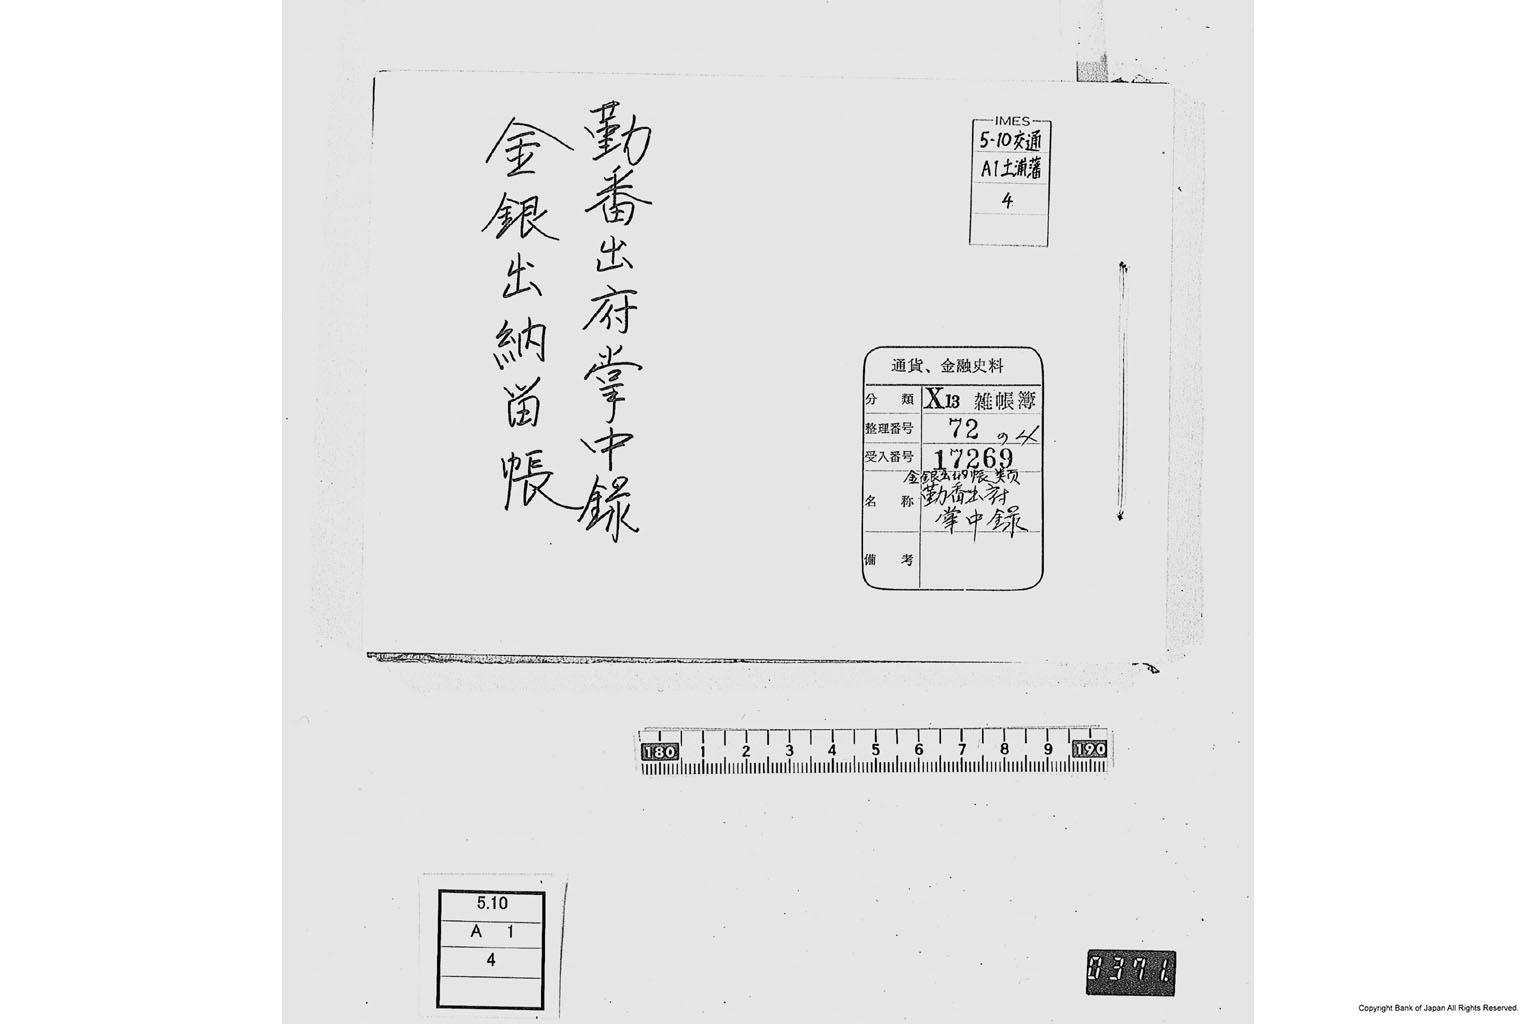 勤番出府掌中録
金銀出納留帳
IMES
5-10交通
A1土浦藩
4
通貨、金融史料
分類 X13 雑帳簿
整理番号 72 の4
受入番号 17269
金銀出納帳類
名称 勤番出府
掌中録
備考
180 1 2 3 4 5 6 7 8 9 190
5.10
A 1
4
0371
Copyright Bank of Japan All Rights Reserved.